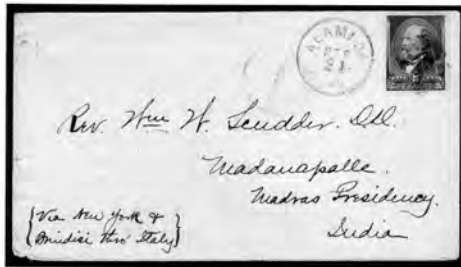 ALAMEDA
21
5
Rev. Wm W. Scudder. D.D.
Madanapalle.
Madras Presidency.
India
{Via New York &
Brindisi thro' Italy}